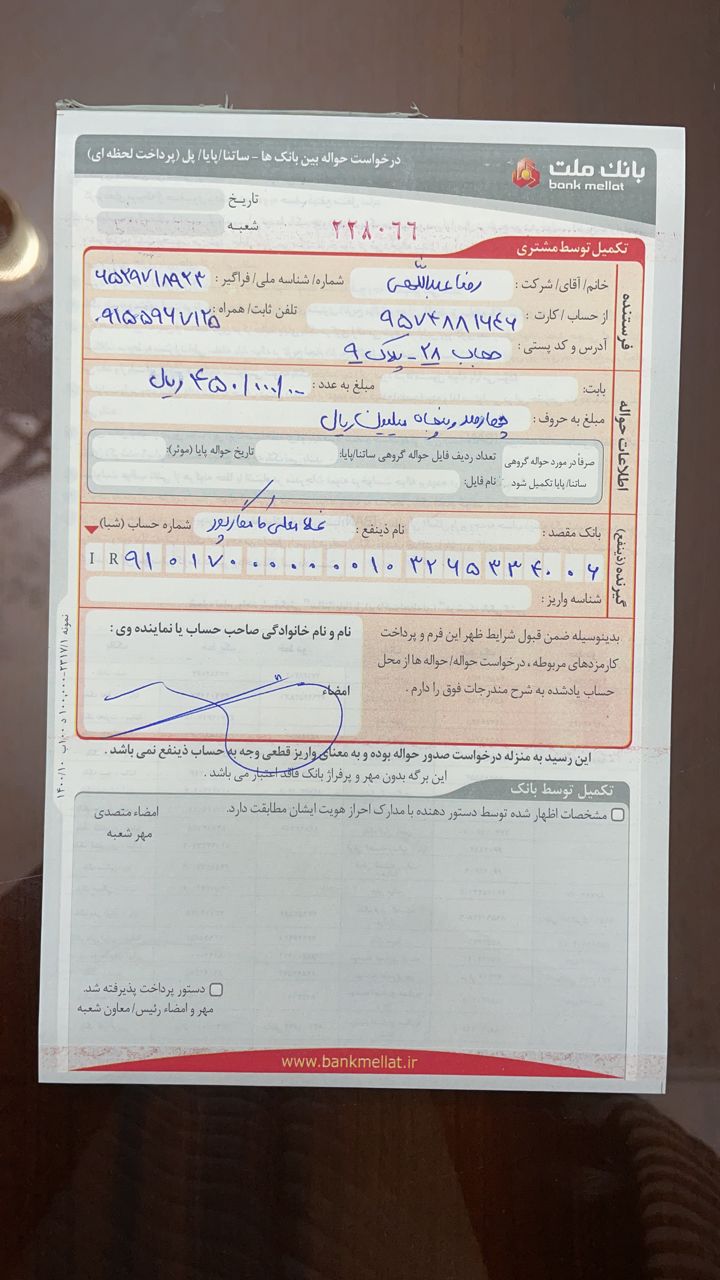 بانک ملت
bank mellat
درخواست حواله بین بانک ها - ساتنا/پایا/ پل (پرداخت لحظه ای)
تاریخ
شعبه
۲۲۸۰۶۶
تکمیل توسط مشتری
فرستنده
خانم/ آقای/ شرکت : رضا عبداللهی شماره/ شناسه ملی/ فراگیر :
از حساب/ کارت : تلفن ثابت/ همراه :
آدرس و کد پستی : ۲۸ - پلاک ۹
اطلاعات حواله
بابت: مبلغ به عدد : ۴۵۰/۰۰۰/۰۰۰ ریال
مبلغ به حروف : چهارصد و پنجاه میلیون ریال
صرفاً در مورد حواله گروهی ساتنا/پایا تکمیل شود
تعداد ردیف فایل حواله گروهی ساتنا/پایا: تاریخ حواله پایا (موثر):
نام فایل:
گیرنده (ذینفع)
بانک مقصد : نام ذینفع : شماره حساب (شبا)
IR ۹۱۰۱۷۰۰۰۰۰۰۰۱۰۳۲۶۵۳۳۴۰۰۶
شناسه واریز :
بدینوسیله ضمن قبول شرایط ظهر این فرم و پرداخت
کارمزدهای مربوطه ، درخواست حواله/ حواله ها از محل
حساب یادشده به شرح مندرجات فوق را دارم .
نام و نام خانوادگی صاحب حساب یا نماینده وی :
امضاء
این رسید به منزله درخواست صدور حواله بوده و به معنای واریز قطعی وجه به حساب ذینفع نمی باشد .
این برگه بدون مهر و پرفراژ بانک فاقد اعتبار می باشد .
تکمیل توسط بانک
مشخصات اظهار شده توسط دستور دهنده با مدارک احراز هویت ایشان مطابقت دارد.
امضاء متصدی
مهر شعبه
دستور پرداخت پذیرفته شد.
مهر و امضاء رئیس/ معاون شعبه
www.bankmellat.ir